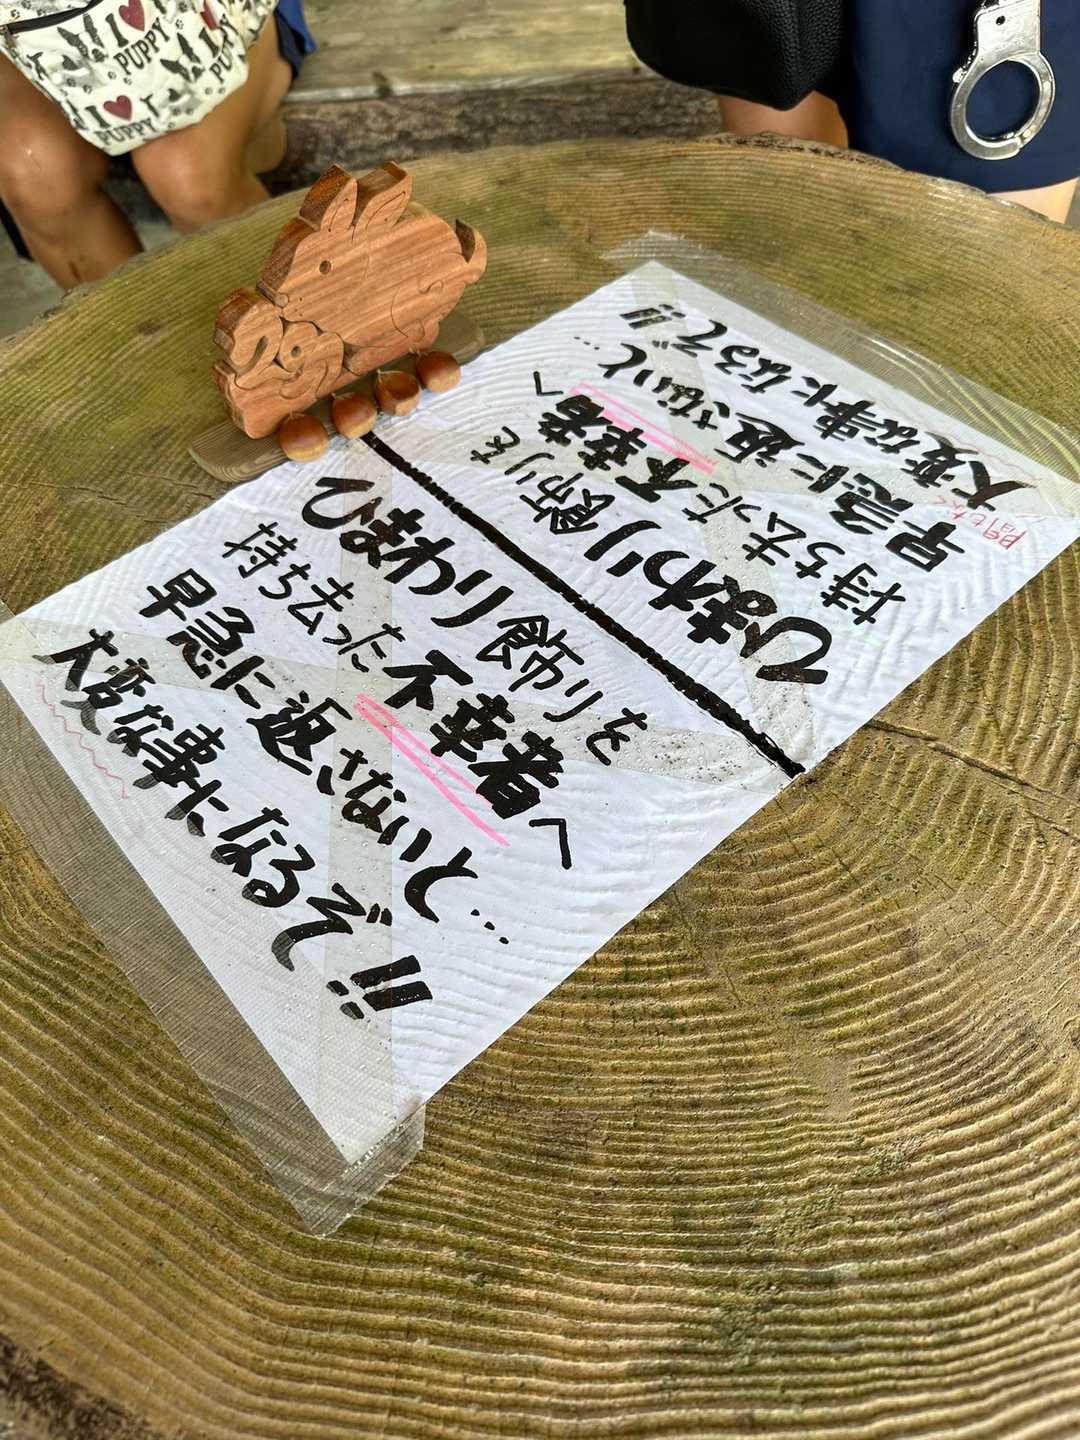 I ♥ PUPPY
I ♥ PUPPY
ひまわり飾りを
持ち去った不幸者へ
早急に返さないと…
大変な事になるぞ!!
ひまわり飾りを
持ち去った不幸者へ
早急に返さないと…
大変な事になるぞ!!